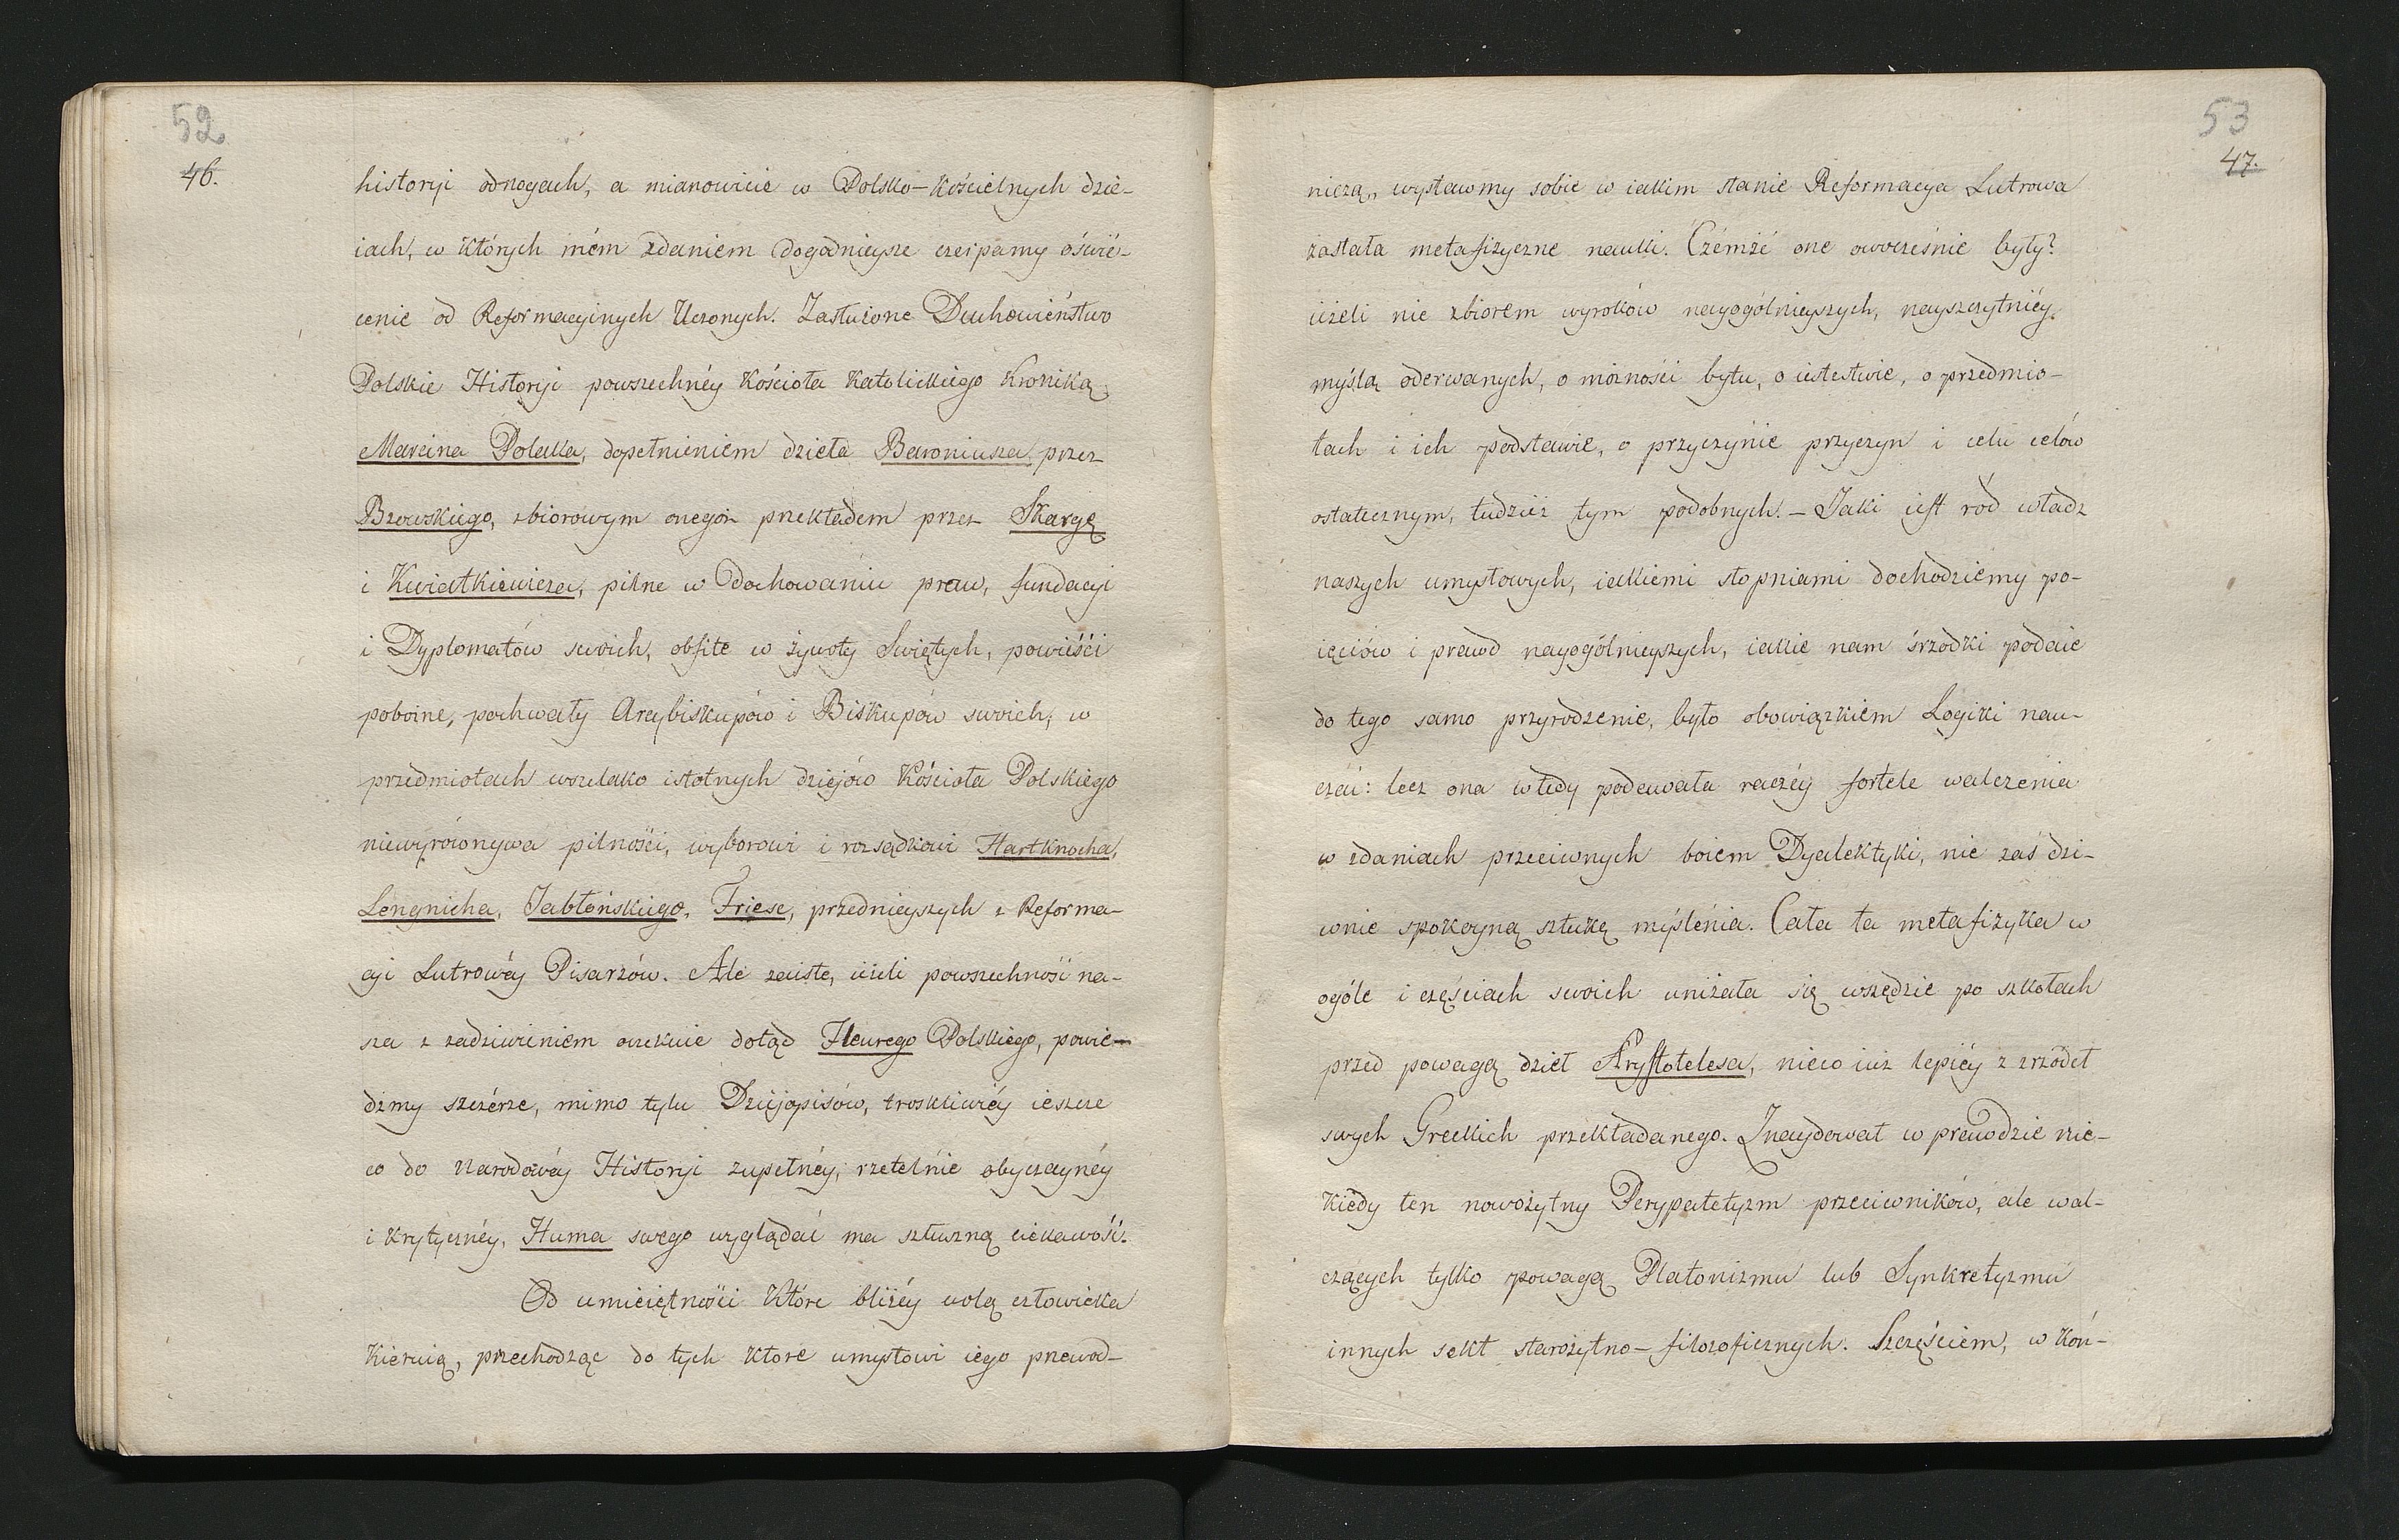 52
46.
historyi odnogach, a mianowicie w Polsko-kościelnych dzie-
iach, w których mém zdaniem dogodnieysze czerpamy oświé-
cenie od Reformacyinych Uczonych. Zasłużone Duchowieństwo
Polskie Historyi powszechnéy Kościoła Katolickiego Kroniką
Marcina Polaka, dopełnieniem dzieła Baroniusza przez
Bzowskiego, zbiorowym onegoż przekładem przez Skargę
i Kwiatkiewicza, pilne w dochowaniu praw, fundacyi
i Dyplomatów swoich, obfite w żywoty Swiętych, powieści
pobożne, pochwały Arcybiskupów i Biskupów swoich, w
przedmiotach wszelako istotnych dziejów Kościoła Polskiego
niewyrównywa pilności, wyborowi i rozsądkowi Hartknocha,
Lengnicha, Jabłońskiego, Friese, przednieyszych z Reforma-
cyi Lutrowéy Pisarzów. Ale zaiste, ieżeli powszechność na-
sza z zadziwieniem oczekuie dotąd Fleurego Polskiego, powie-
dzmy szczérze, mimo tylu Dziejopisów, troskliwiéy ieszcze
co do Narodowéy Historyi zupełnéy, rzetelnie obyczaynéy
i krytycznéy, Huma swego wyglądać ma słuszną ciekawość.
Od umieiętności które bliżéy wolą człowieka
kieruią, przechodząc do tych które umysłowi iego przewod-
53
47.
niczą, wystawmy sobie w iakim stanie Reformacya Lutrowa
zastała metafizyczne nauki. Czémże one owocześnie były?
ieżeli nie zbiorem wyroków nayogólnieyszych, nayszczytniéy
myślą oderwanych, o możności bytu, o iestestwie, o przedmio-
tach i ich podstawie, o przyczynie przyczyn i celu celów
ostatecznym, tudzież tym podobnych. - Jaki iest ród władz
naszych umysłowych, iakiemi stopniami dochodziemy po-
ięciów i prawd nayogólnieyszych, iakie nam śrzodki podaie
do tego samo przyrodzenie, było obowiązkiem Logiki nau-
czać: lecz ona wtedy podawała raczéy fortele walczenia
w zdaniach przeciwnych boiem Dyalektyki, nie zaś dzi-
wnie spokoyną sztukę myślenia. Cała ta metafizyka w
ogóle i częściach swoich uniżała się wszędzie po szkołach
przed powagą dzieł Arystotelesa, nieco iuż lepiéy z zrzódeł
swych Greckich przekładanego. Znaydował w prawdzie nie-
kiedy ten nowożytny Perypatetyzm przeciwników, ale wal-
czących tylko powagą Platonizmu lub Synkretyzmu
innych sekt starożytno-filozoficznych. Szczęściem, w koń-